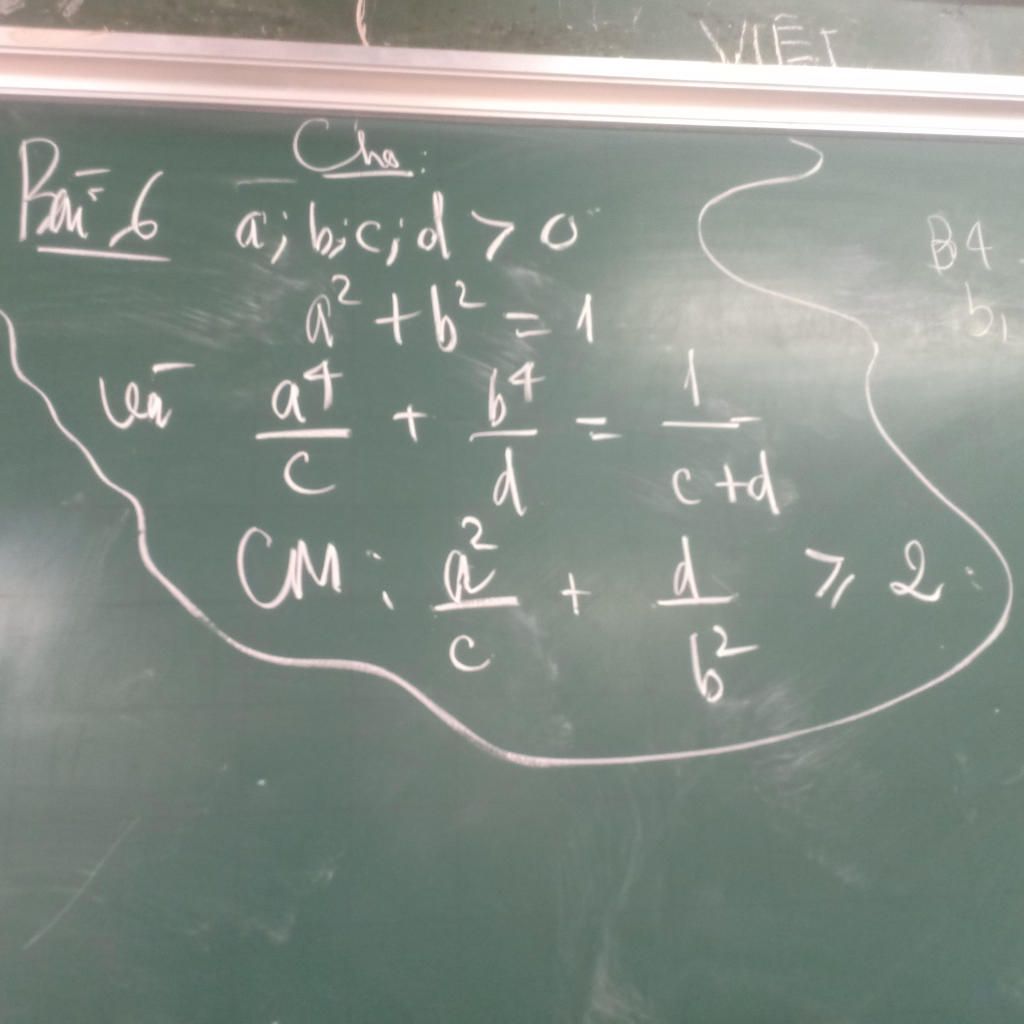 VIẾT
Cho:
Bài 6 a; b; c; d > 0
a² + b² = 1
và a⁴/c + b⁴/d = 1/(c+d)
CM: a²/c + d/b² ⩾ 2
B4
b,